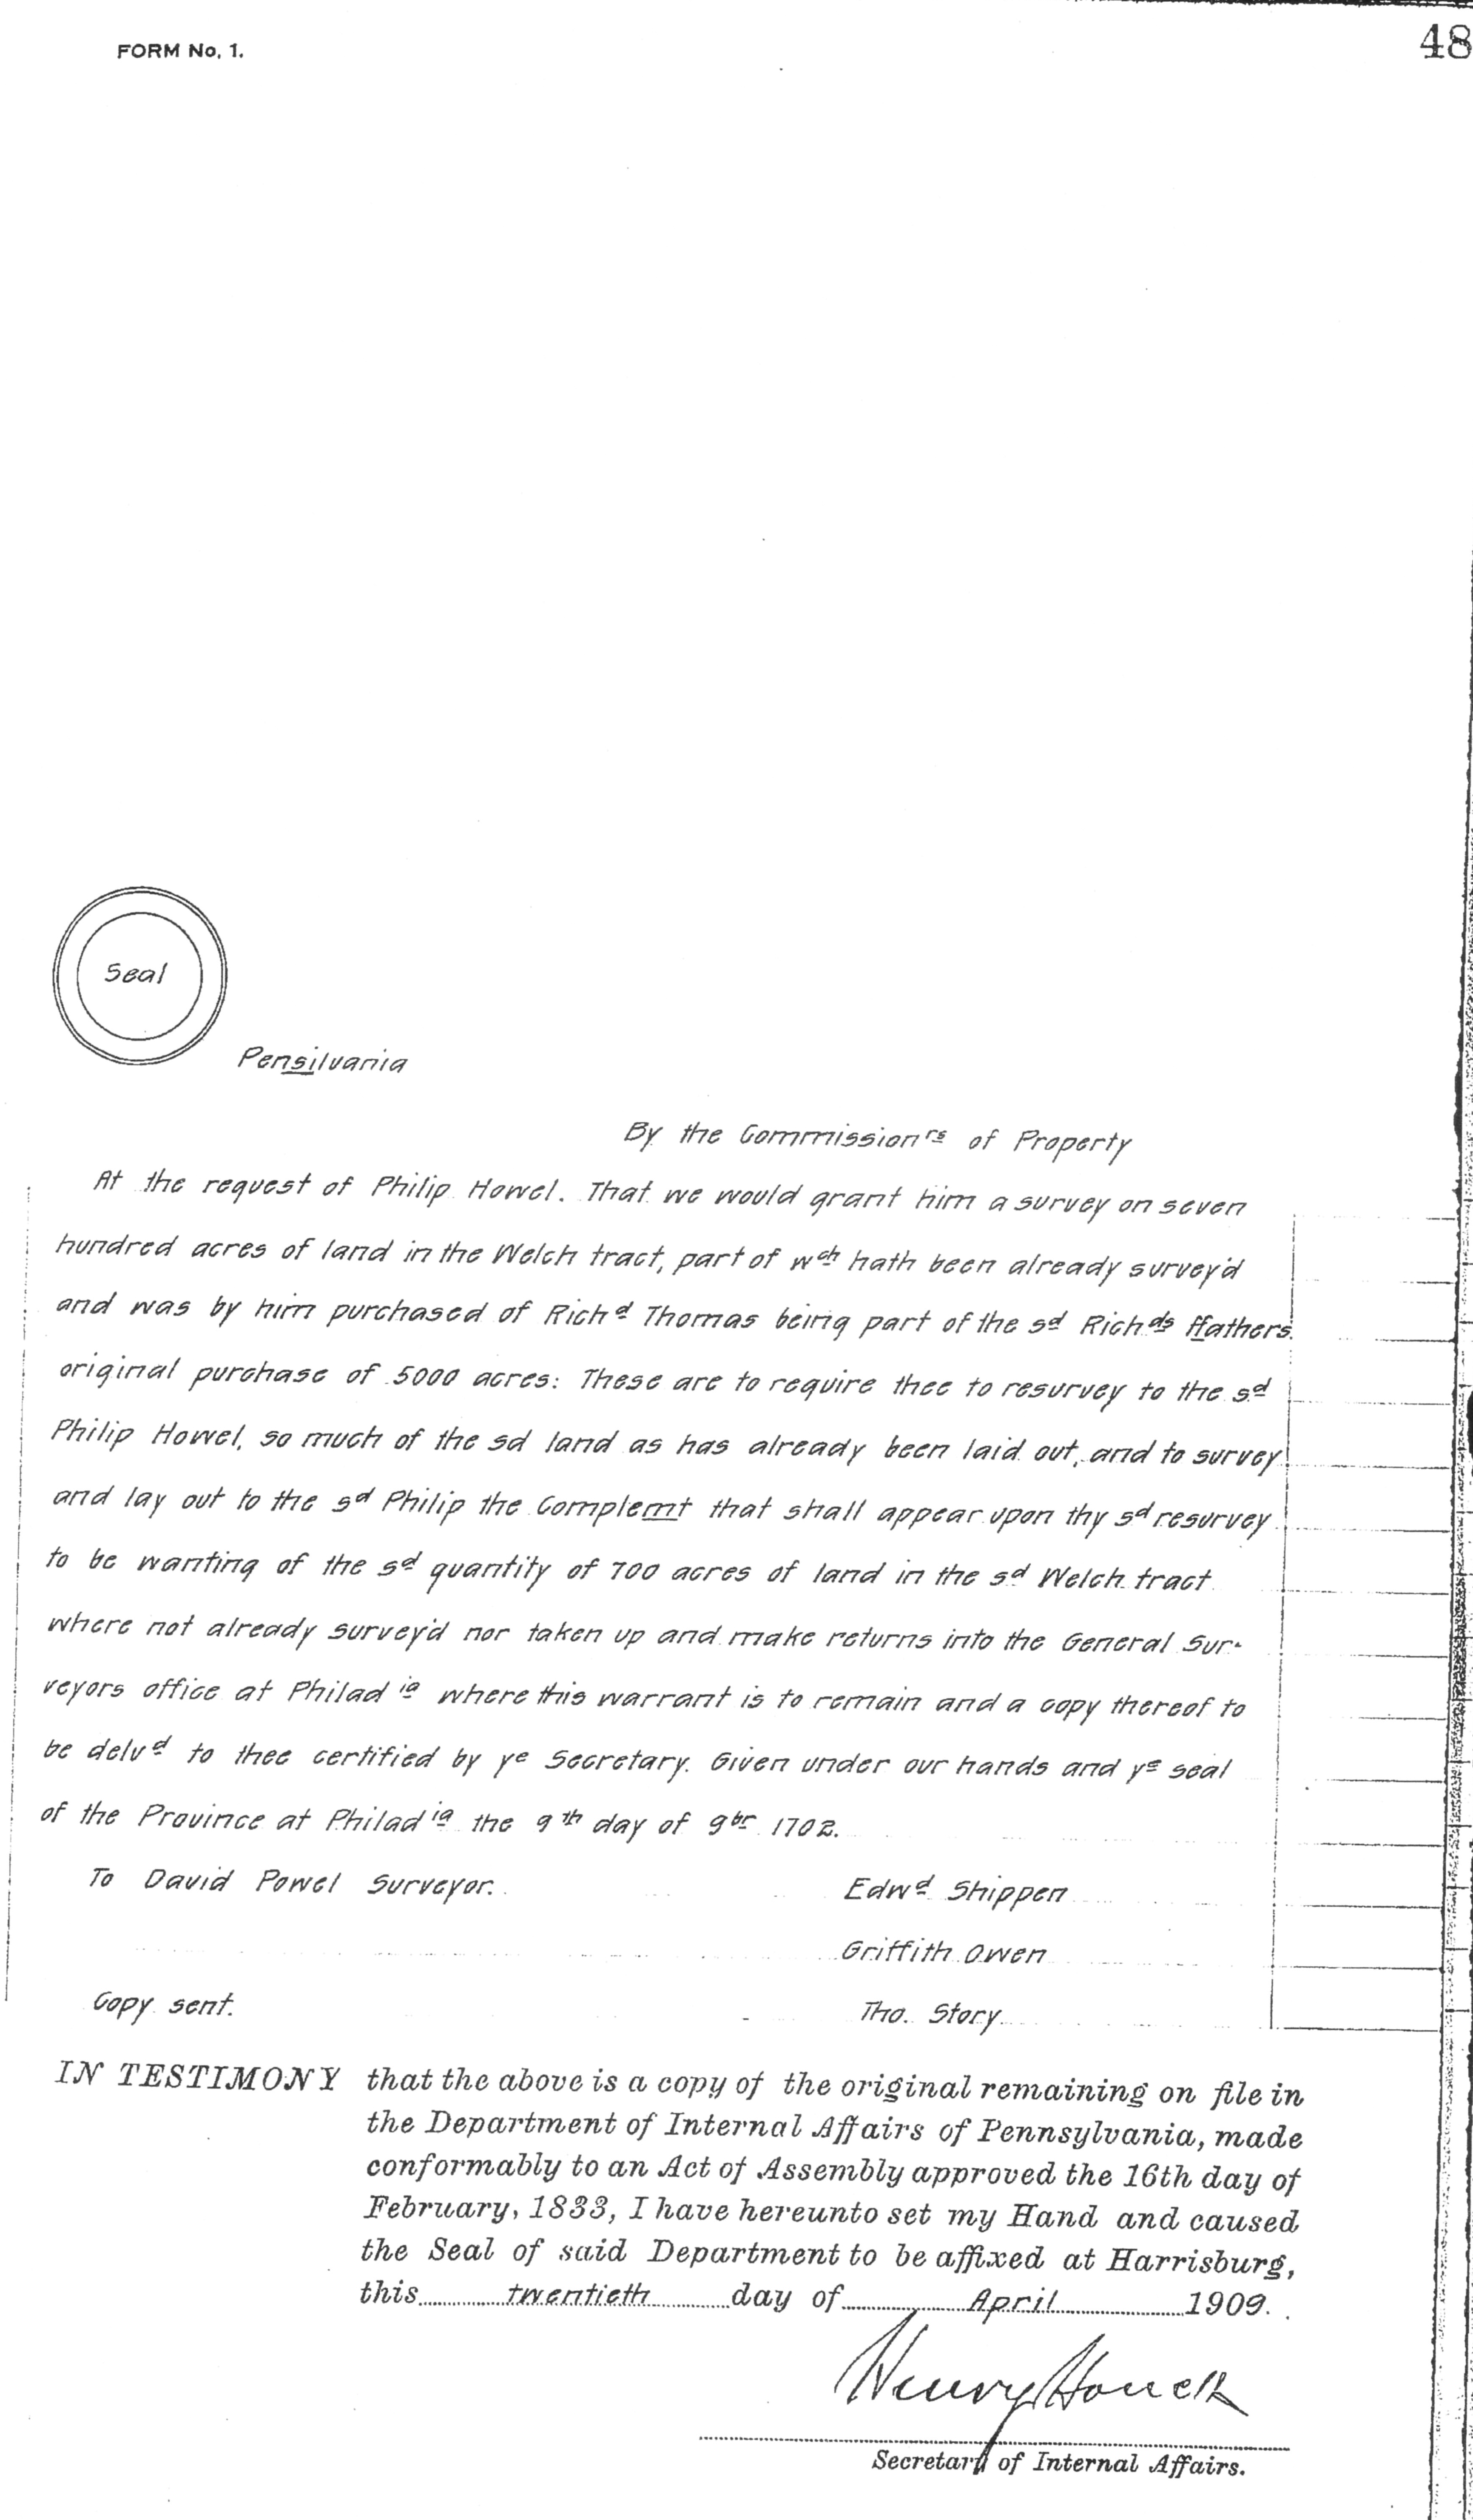 FORM No. 1.
48
Seal
Pensilvania
By the Commissionrs of Property
At the request of Philip Howel. That we would grant him a survey on seven
hundred acres of land in the Welch tract, part of wch hath been already survey'd
and was by him purchased of Richd Thomas being part of the sd Richds ffathers
original purchase of 5000 acres: These are to require thee to resurvey to the sd
Philip Howel, so much of the sd land as has already been laid out, and to survey
and lay out to the sd Philip the Complemt that shall appear upon thy sd resurvey
to be wanting of the sd quantity of 700 acres of land in the sd Welch tract
where not already survey'd nor taken up and make returns into the General Sur-
veyors office at Philadia where this warrant is to remain and a copy thereof to
be delvd to thee certified by ye Secretary. Given under our hands and ye seal
of the Province at Philadia the 9th day of 9br 1702.
To David Powel Surveyor.
Edwd Shippen
Griffith Owen
Copy sent.
Tho. Story
IN TESTIMONY that the above is a copy of the original remaining on file in
the Department of Internal Affairs of Pennsylvania, made
conformably to an Act of Assembly approved the 16th day of
February, 1833, I have hereunto set my Hand and caused
the Seal of said Department to be affixed at Harrisburg,
this twentieth day of April 1909.
Henry Houck
Secretary of Internal Affairs.